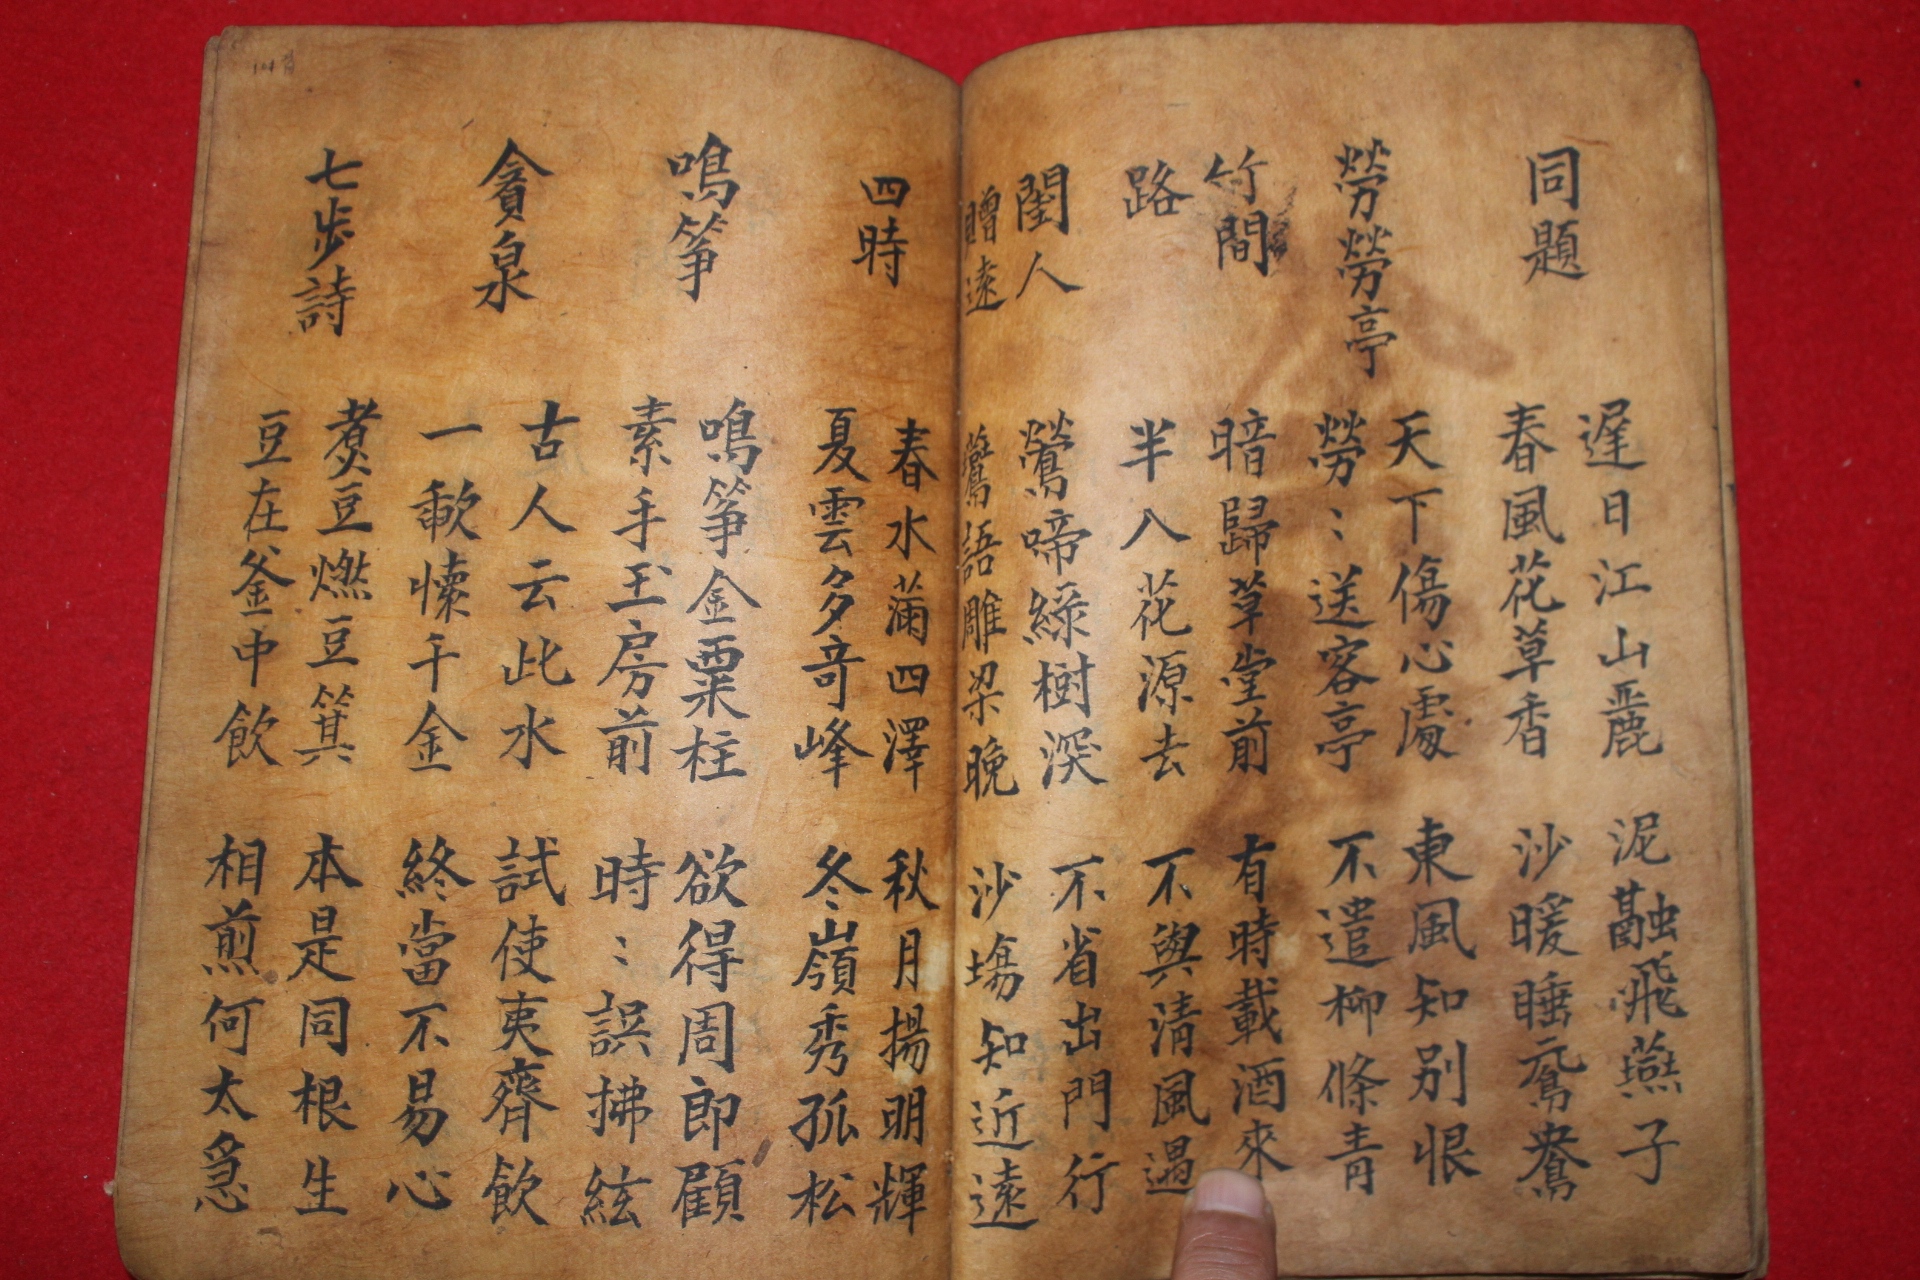 同題
遲日江山麗 泥融飛燕子
春風花草香 沙暖睡鴛鴦
勞勞亭
天下傷心處 東風知別恨
勞〻送客亭 不遣柳條青
竹間
路
暗歸草堂前 有時載酒來
半八花源去 不與清風過
閨人
贈遠
鶯啼綠樹深 不省出門行
鷰語雕梁晚 沙塲知近遠
四時
春水滿四澤 秋月揚明輝
夏雲多奇峰 冬嶺秀孤松
鳴箏
鳴箏金粟柱 欲得周郎顧
素手玉房前 時〻誤拂絃
貪泉
古人云此水 試使夷齊飲
一歃懷千金 終當不易心
七步詩
煑豆燃豆箕 本是同根生
豆在釜中飲 相煎何太急